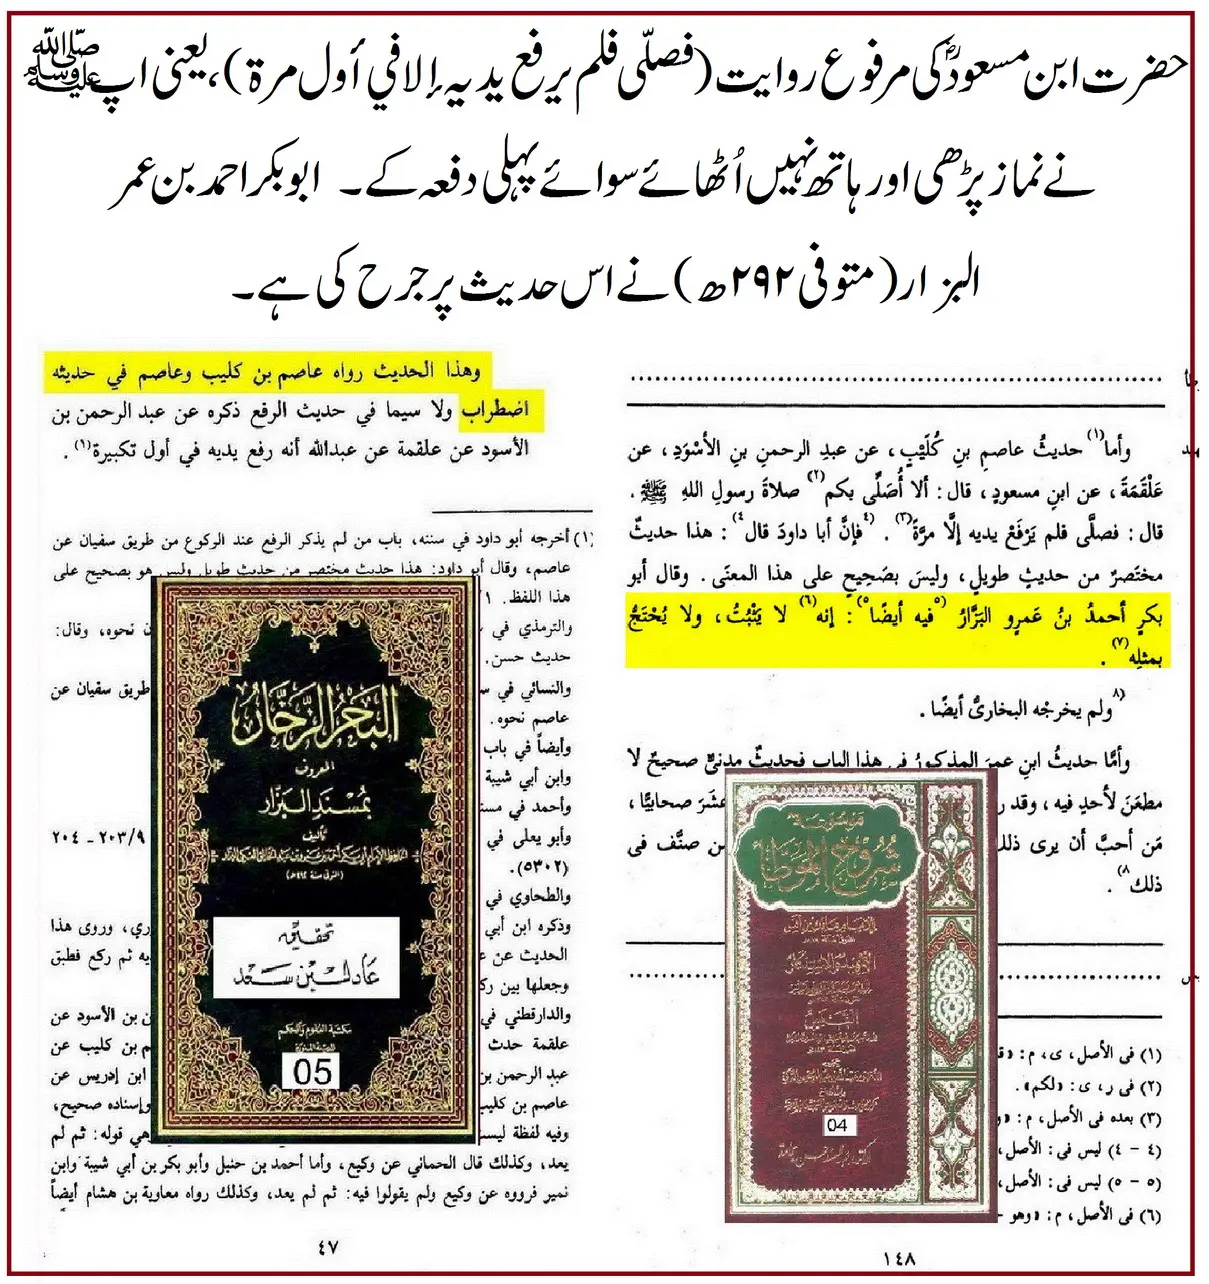 حضرت ابن مسعودؓ کی مرفوع روایت (فصلّی فلم یرفع یدیہ إلا في أول مرة)، یعنی اپ ﷺ
نے نماز پڑھی اور ہاتھ نہیں اُٹھائے سوائے پہلی دفعہ کے۔ ابوبکر احمد بن عمر
البزار (متوفی ۲۹۲ھ) نے اس حدیث پر جرح کی ہے۔
وأما(١) حديثُ عاصمِ بنِ كُلَيْبٍ، عن عبدِ الرحمنِ بنِ الأسْوَدِ، عن
عَلْقَمَةَ، عن ابنِ مسعودٍ، قال: ألا أُصَلِّى بكم(٢) صلاةَ رسولِ اللهِ ﷺ.
قال: فصلَّى فلم يَرْفَعْ يديه إلَّا مرَّةً(٣). (٤فإنَّ أبا داودَ قال٤): هذا حديثٌ
مختَصرٌ من حديثٍ طويلٍ، وليسَ بصَحيحٍ على هذا المعنَى. وقال أبو
بكرٍ أحمدُ بنُ عَمرٍو البَزَّارُ (٥فيه أيضًا٥): إنه(٦) لا يَثْبُتُ، ولا يُحْتَجُّ
بمثلِه(٧).
(٨ولم يخرجْه البخارىُّ أيضًا.
وأمَّا حديثُ ابنِ عمرَ المذكورُ فى هذا البابِ فحديثٌ مدنىٌّ صحيحٌ لا
مطعَنَ لأحدٍ فيه، وقد
عشَرَ صحابيًّا،
مَن أحبَّ أن يرى ذلك
صنَّف فى
ذلك٨).
(١) فى الأصل، ى، م:
(٢) فى ر، ى: «لكم».
(٣) بعده فى الأصل، م:
(٤ - ٤) ليس فى: الأصل،
(٥ - ٥) ليس فى: الأصل،
(٦) فى الأصل، م: «وهو
١٤٨
وهذا الحديث رواه عاصم بن كليب وعاصم في حديثه
اضطراب ولا سيما في حديث الرفع ذكره عن عبد الرحمن بن
الأسود عن علقمة عن عبدالله أنه رفع يديه في أول تكبيرة(١).
(١) أخرجه أبو داود في سننه، باب من لم يذكر الرفع عند الركوع من طريق سفيان عن
عاصم، وقال أبو داود: هذا حديث مختصر من حديث طويل وليس هو بصحيح على
هذا اللفظ.
والترمذي في
نحوه، وقال:
حديث حسن.
والنسائي في
طريق سفيان عن
عاصم نحوه.
وأيضاً في باب
وابن أبي شيبة
وأحمد في
وأبو يعلى في
٢٠٣/٩ - ٢٠٤
(٥٣٠٢).
والطحاوي في
وذكره ابن أبي
وروى هذا
الحديث عن
ثم ركع فطبق
وجعلها بين
والدارقطني في
بن الأسود عن
علقمة حدث
بن كليب عن
عبد الرحمن بن
ابن إدريس عن
عاصم بن كليب
وإسناده صحيح،
وفيه لفظة
قوله: ثم لم
يعد، وكذلك قال الحماني عن وكيع، وأما أحمد بن حنبل وأبو بكر بن أبي شيبة وابن
نمير فرووه عن وكيع ولم يقولوا فيه: ثم لم يعد، وكذلك رواه معاوية بن هشام أيضاً
٤٧
البحر الزخار
المعروف
بمسند البزار
تأليف
تحقيق
عادل بن سعد
مكتبة العلوم والحكم
05
موسوعة
شروح الموطأ
04